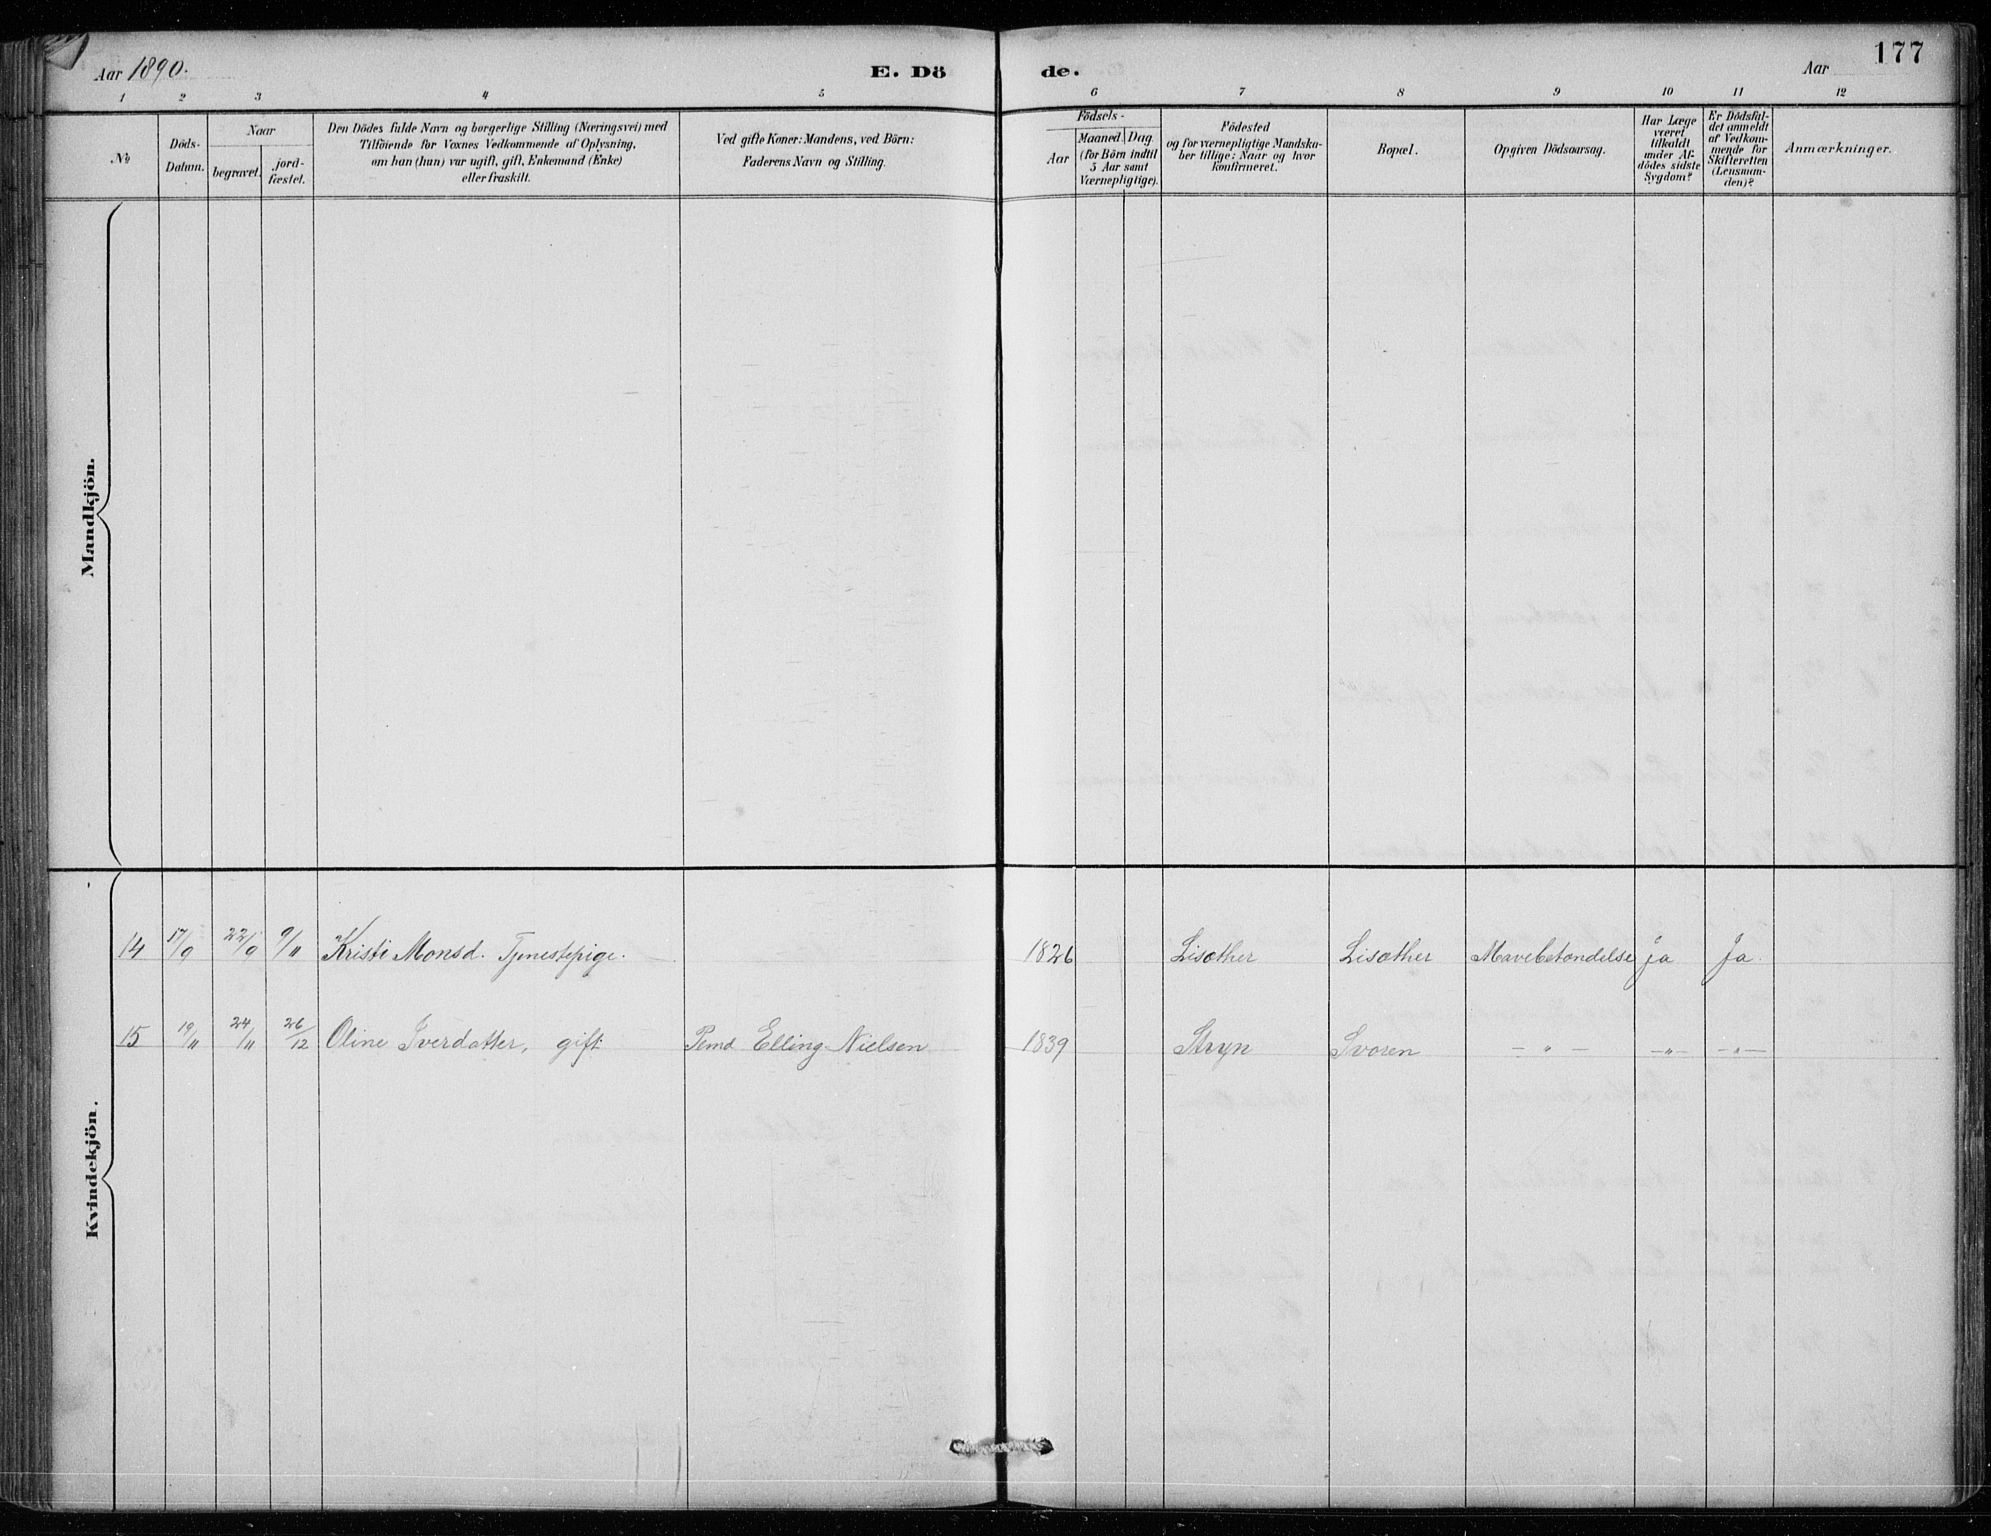 Aar 1890.
E. Dö
de.
Aar
177
1 2 3 4 5 6 7 8 9 10 11 12
No
Döds-
Datum.
Naar
begravet.
jord-
fæstet.
Den Dödes fulde Navn og borgerlige Stilling (Næringsvei) med
Tilföiende for Voxnes Vedkommende af Oplysning,
om han (hun) var ugift, gift, Enkemand (Enke)
eller fraskilt.
Ved gifte Koner: Mandens, ved Börn:
Faderens Navn og Stilling.
Födsels-
Aar
Maaned. Dag.
(for Börn indtil
5 Aar samt
Værnepligtige).
Födested
og for værnepligtige Mandska-
ber tillige: Naar og hvor
konfirmeret.
Bopæl.
Opgiven Dödsaarsag.
Har Læge
været
tilkaldt
under Af-
dödes sidste
Sygdom?
Er Dödsfal-
det anmeldt
af Vedkom-
mende for
Skifteretten
(Lensman-
den)?
Anmærkninger.
Mandkjön.
14 17/9 22/9 9/11 Kristi Monsd. Tjenestepige. 1826 Lisæther Lisæther Mavebetændelse ja Ja.
15 19/11 24/11 26/12 Oline Iverdatter, gift Pemd Elling Nielsen 1839 Stryn Svoren — " — — " — — " —
Kvindekjön.